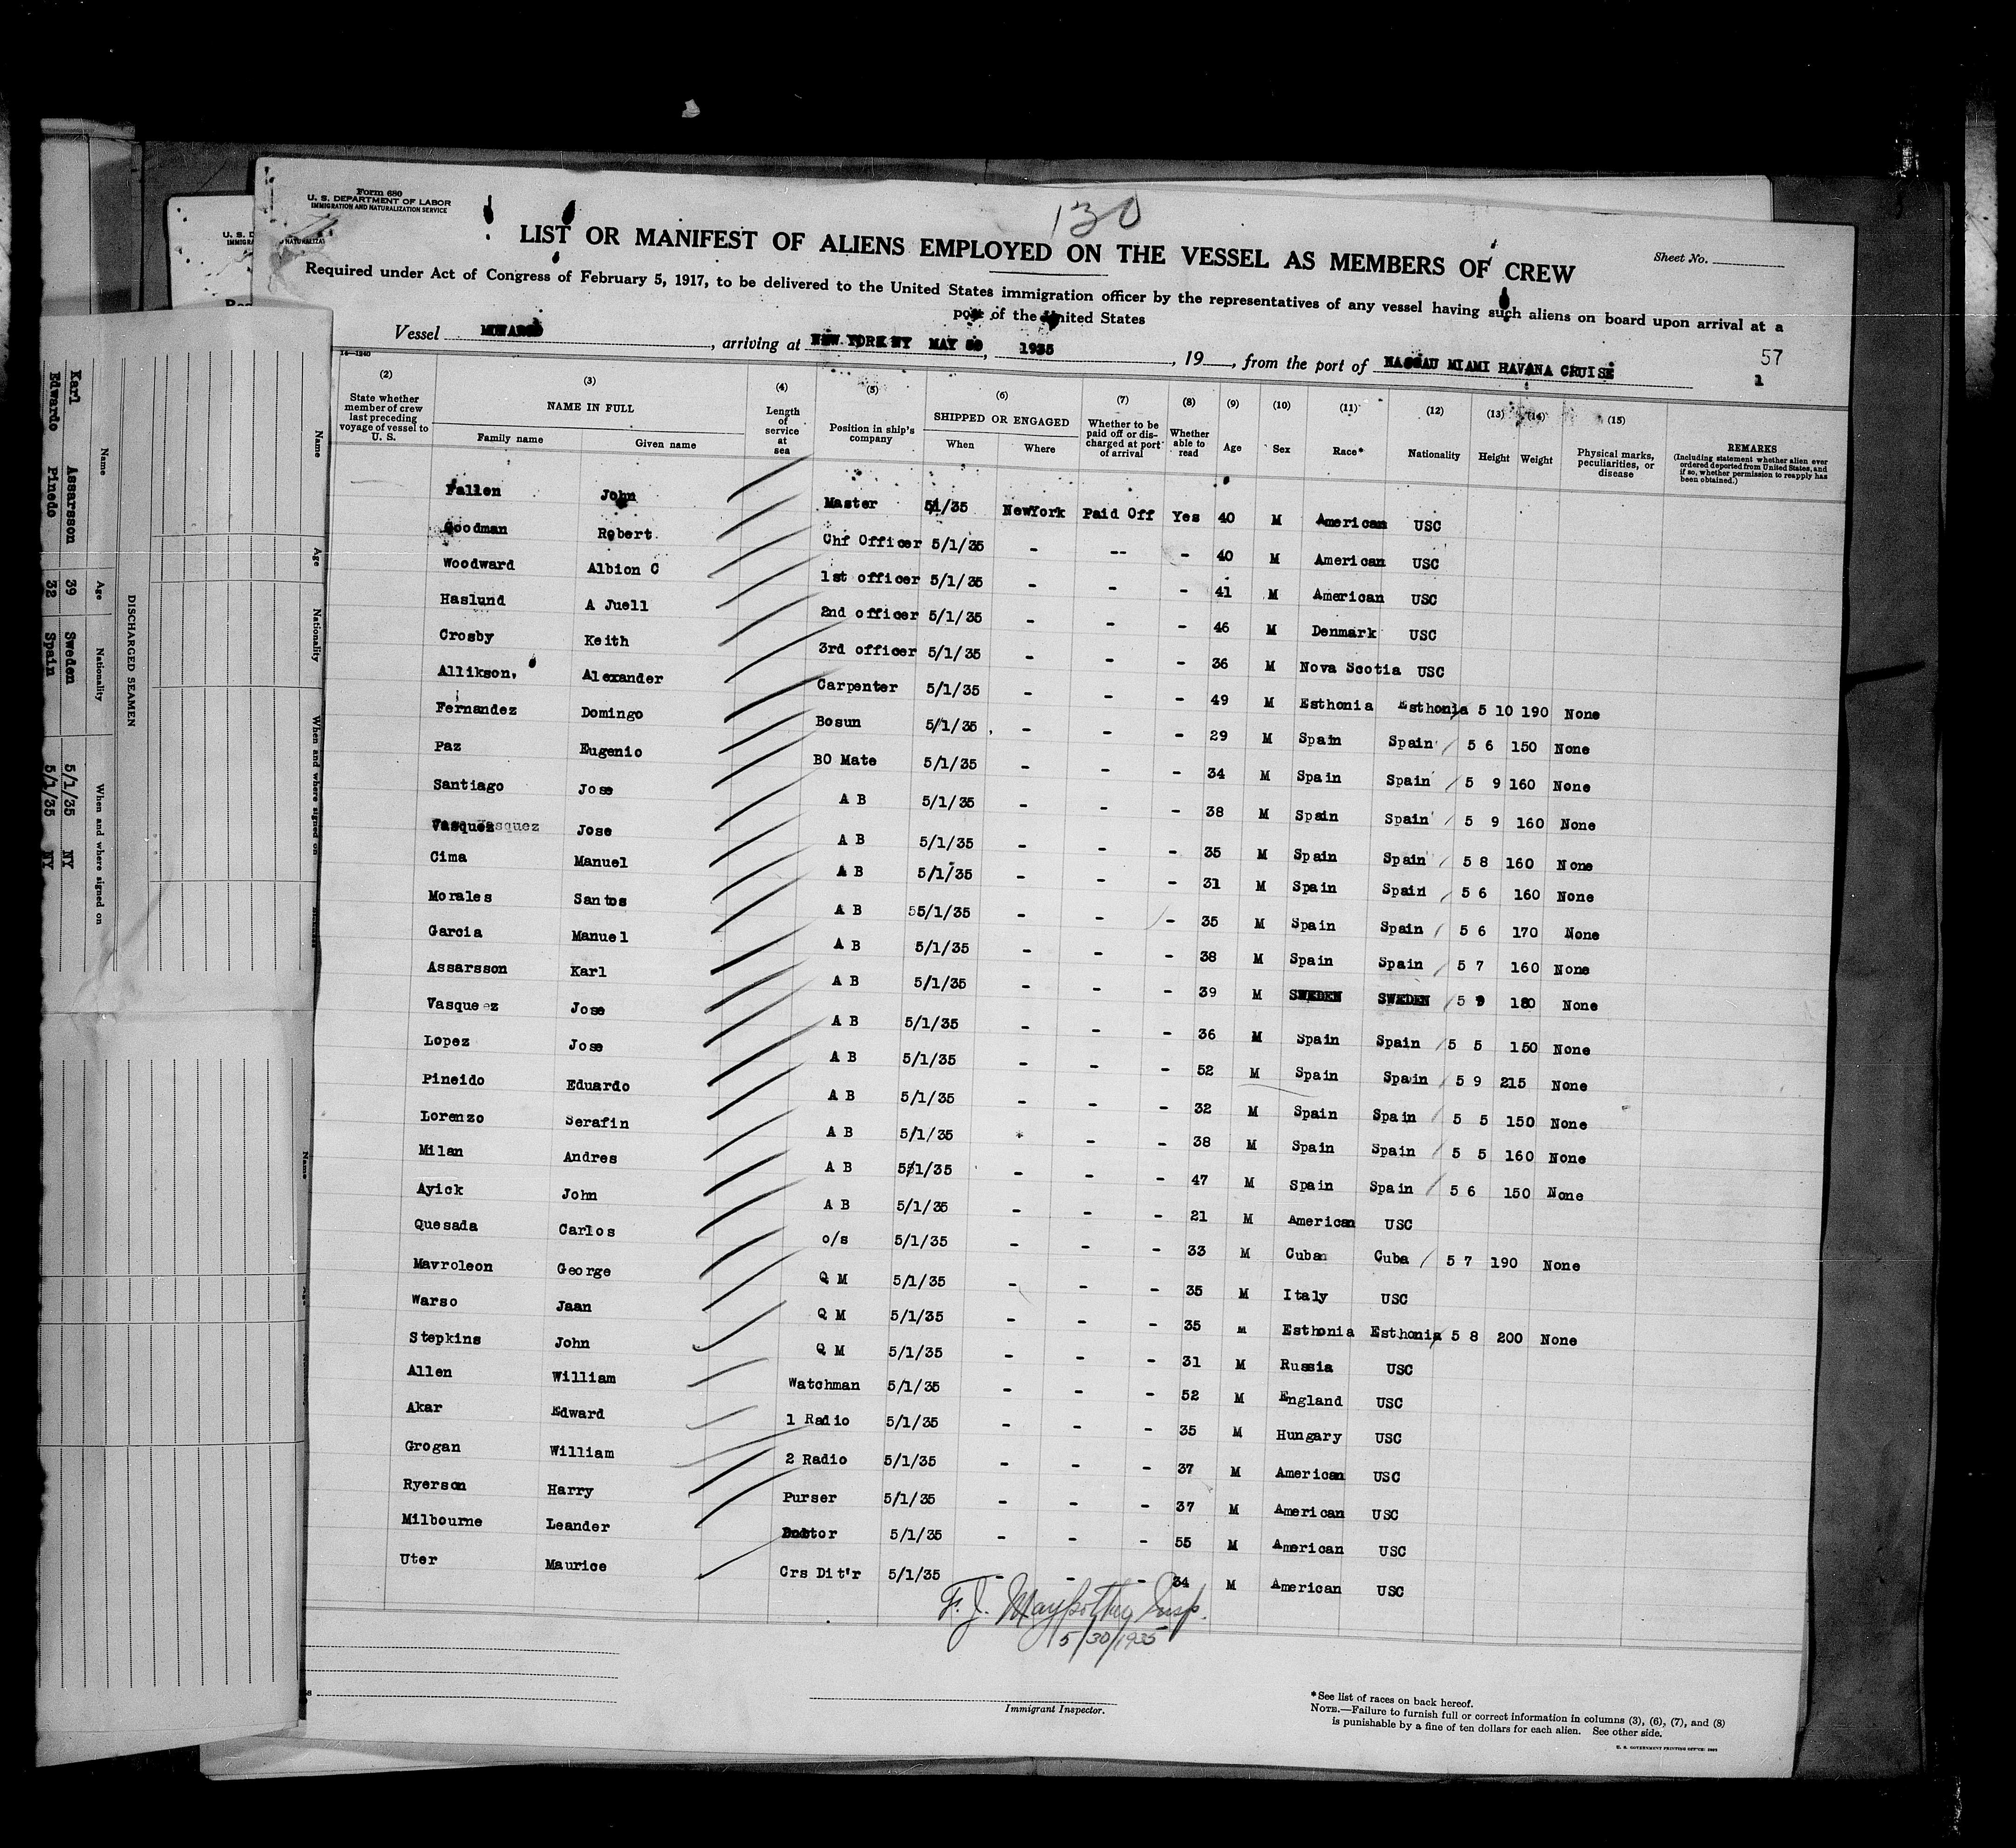 Form 680
U. S. DEPARTMENT OF LABOR
IMMIGRATION AND NATURALIZATION SERVICE
130
LIST OR MANIFEST OF ALIENS EMPLOYED ON THE VESSEL AS MEMBERS OF CREW
Sheet No.
Required under Act of Congress of February 5, 1917, to be delivered to the United States immigration officer by the representatives of any vessel having such aliens on board upon arrival at a
port of the United States
Vessel MUNARGO, arriving at NEW YORK NY MAY 30, 1935, 19, from the port of NASSAU MIAMI HAVANA CRUISE
57
1
14—1240
(2) State whether member of crew last preceding voyage of vessel to U. S.
(3) NAME IN FULL Family name Given name
(4) Length of service at sea
(5) Position in ship's company
(6) SHIPPED OR ENGAGED When Where
(7) Whether to be paid off or discharged at port of arrival
(8) Whether able to read
(9) Age
(10) Sex
(11) Race*
(12) Nationality
(13) Height
(14) Weight
(15) Physical marks, peculiarities, or disease
REMARKS (Including statement whether alien ever ordered deported from United States, and if so, whether permission to reapply has been obtained.)
Fallen John Master 51/35 NewYork Paid Off Yes 40 M American USC
Goodman Robert Chf Officer 5/1/35 - -- - 40 M American USC
Woodward Albion C 1st officer 5/1/35 - - - 41 M American USC
Haslund A Juell 2nd officer 5/1/35 - - - 46 M Denmark USC
Crosby Keith 3rd officer 5/1/35 - - - 36 M Nova Scotia USC
Allikson, Alexander Carpenter 5/1/35 - - - 49 M Esthonia Esthonia 5 10 190 None
Fernandez Domingo Bosun 5/1/35 - - - 29 M Spain Spain / 5 6 150 None
Paz Eugenio BO Mate 5/1/35 - - - 34 M Spain Spain / 5 9 160 None
Santiago Jose A B 5/1/35 - - - 38 M Spain Spain / 5 9 160 None
Vasquez Jose A B 5/1/35 - - - 35 M Spain Spain / 5 8 160 None
Cima Manuel A B 5/1/35 - - - 31 M Spain Spain / 5 6 160 None
Morales Santos A B 55/1/35 - - - 35 M Spain Spain / 5 6 170 None
Garcia Manuel A B 5/1/35 - - - 38 M Spain Spain / 5 7 160 None
Assarsson Karl A B 5/1/35 - - - 39 M SWEDEN SWEDEN / 5 9 180 None
Vasqueez Jose A B 5/1/35 - - - 36 M Spain Spain / 5 5 150 None
Lopez Jose A B 5/1/35 - - - 52 M Spain Spain / 5 9 215 None
Pineido Eduardo A B 5/1/35 - - - 32 M Spain Spain / 5 5 150 None
Lorenzo Serafin A B 5/1/35 * - - 38 M Spain Spain / 5 5 160 None
Milan Andres A B 551/35 - - - 47 M Spain Spain / 5 6 150 None
Ayick John A B 5/1/35 - - - 21 M American USC
Quesada Carlos o/s 5/1/35 - - - 33 M Cuban Cuba / 5 7 190 None
Mavroleon George Q M 5/1/35 - - - 35 M Italy USC
Warso Jaan Q M 5/1/35 - - - 35 M Esthonia Esthonia 5 8 200 None
Stepkins John Q M 5/1/35 - - - 31 M Russia USC
Allen William Watchman 5/1/35 - - - 52 M England USC
Akar Edward 1 Radio 5/1/35 - - - 35 M Hungary USC
Grogan William 2 Radio 5/1/35 - - - 37 M American USC
Ryerson Harry Purser 5/1/35 - - - 37 M American USC
Milbourne Leander Doctor 5/1/35 - - - 55 M American USC
Uter Maurice Crs Dit'r 5/1/35 - - - 34 M American USC
F. J. Insp.
5/30/1935
Immigrant Inspector.
*See list of races on back hereof.
NOTE.—Failure to furnish full or correct information in columns (3), (6), (7), and (8)
is punishable by a fine of ten dollars for each alien. See other side.
U. S. GOVERNMENT PRINTING OFFICE
DISCHARGED SEAMEN
Name Age Nationality When and where signed on
Karl Assarsson 39 Sweden 5/1/35 NY
Edwardo Pinedo 32 Spain 5/1/35 NY
Name Age Nationality When and where signed on
Name